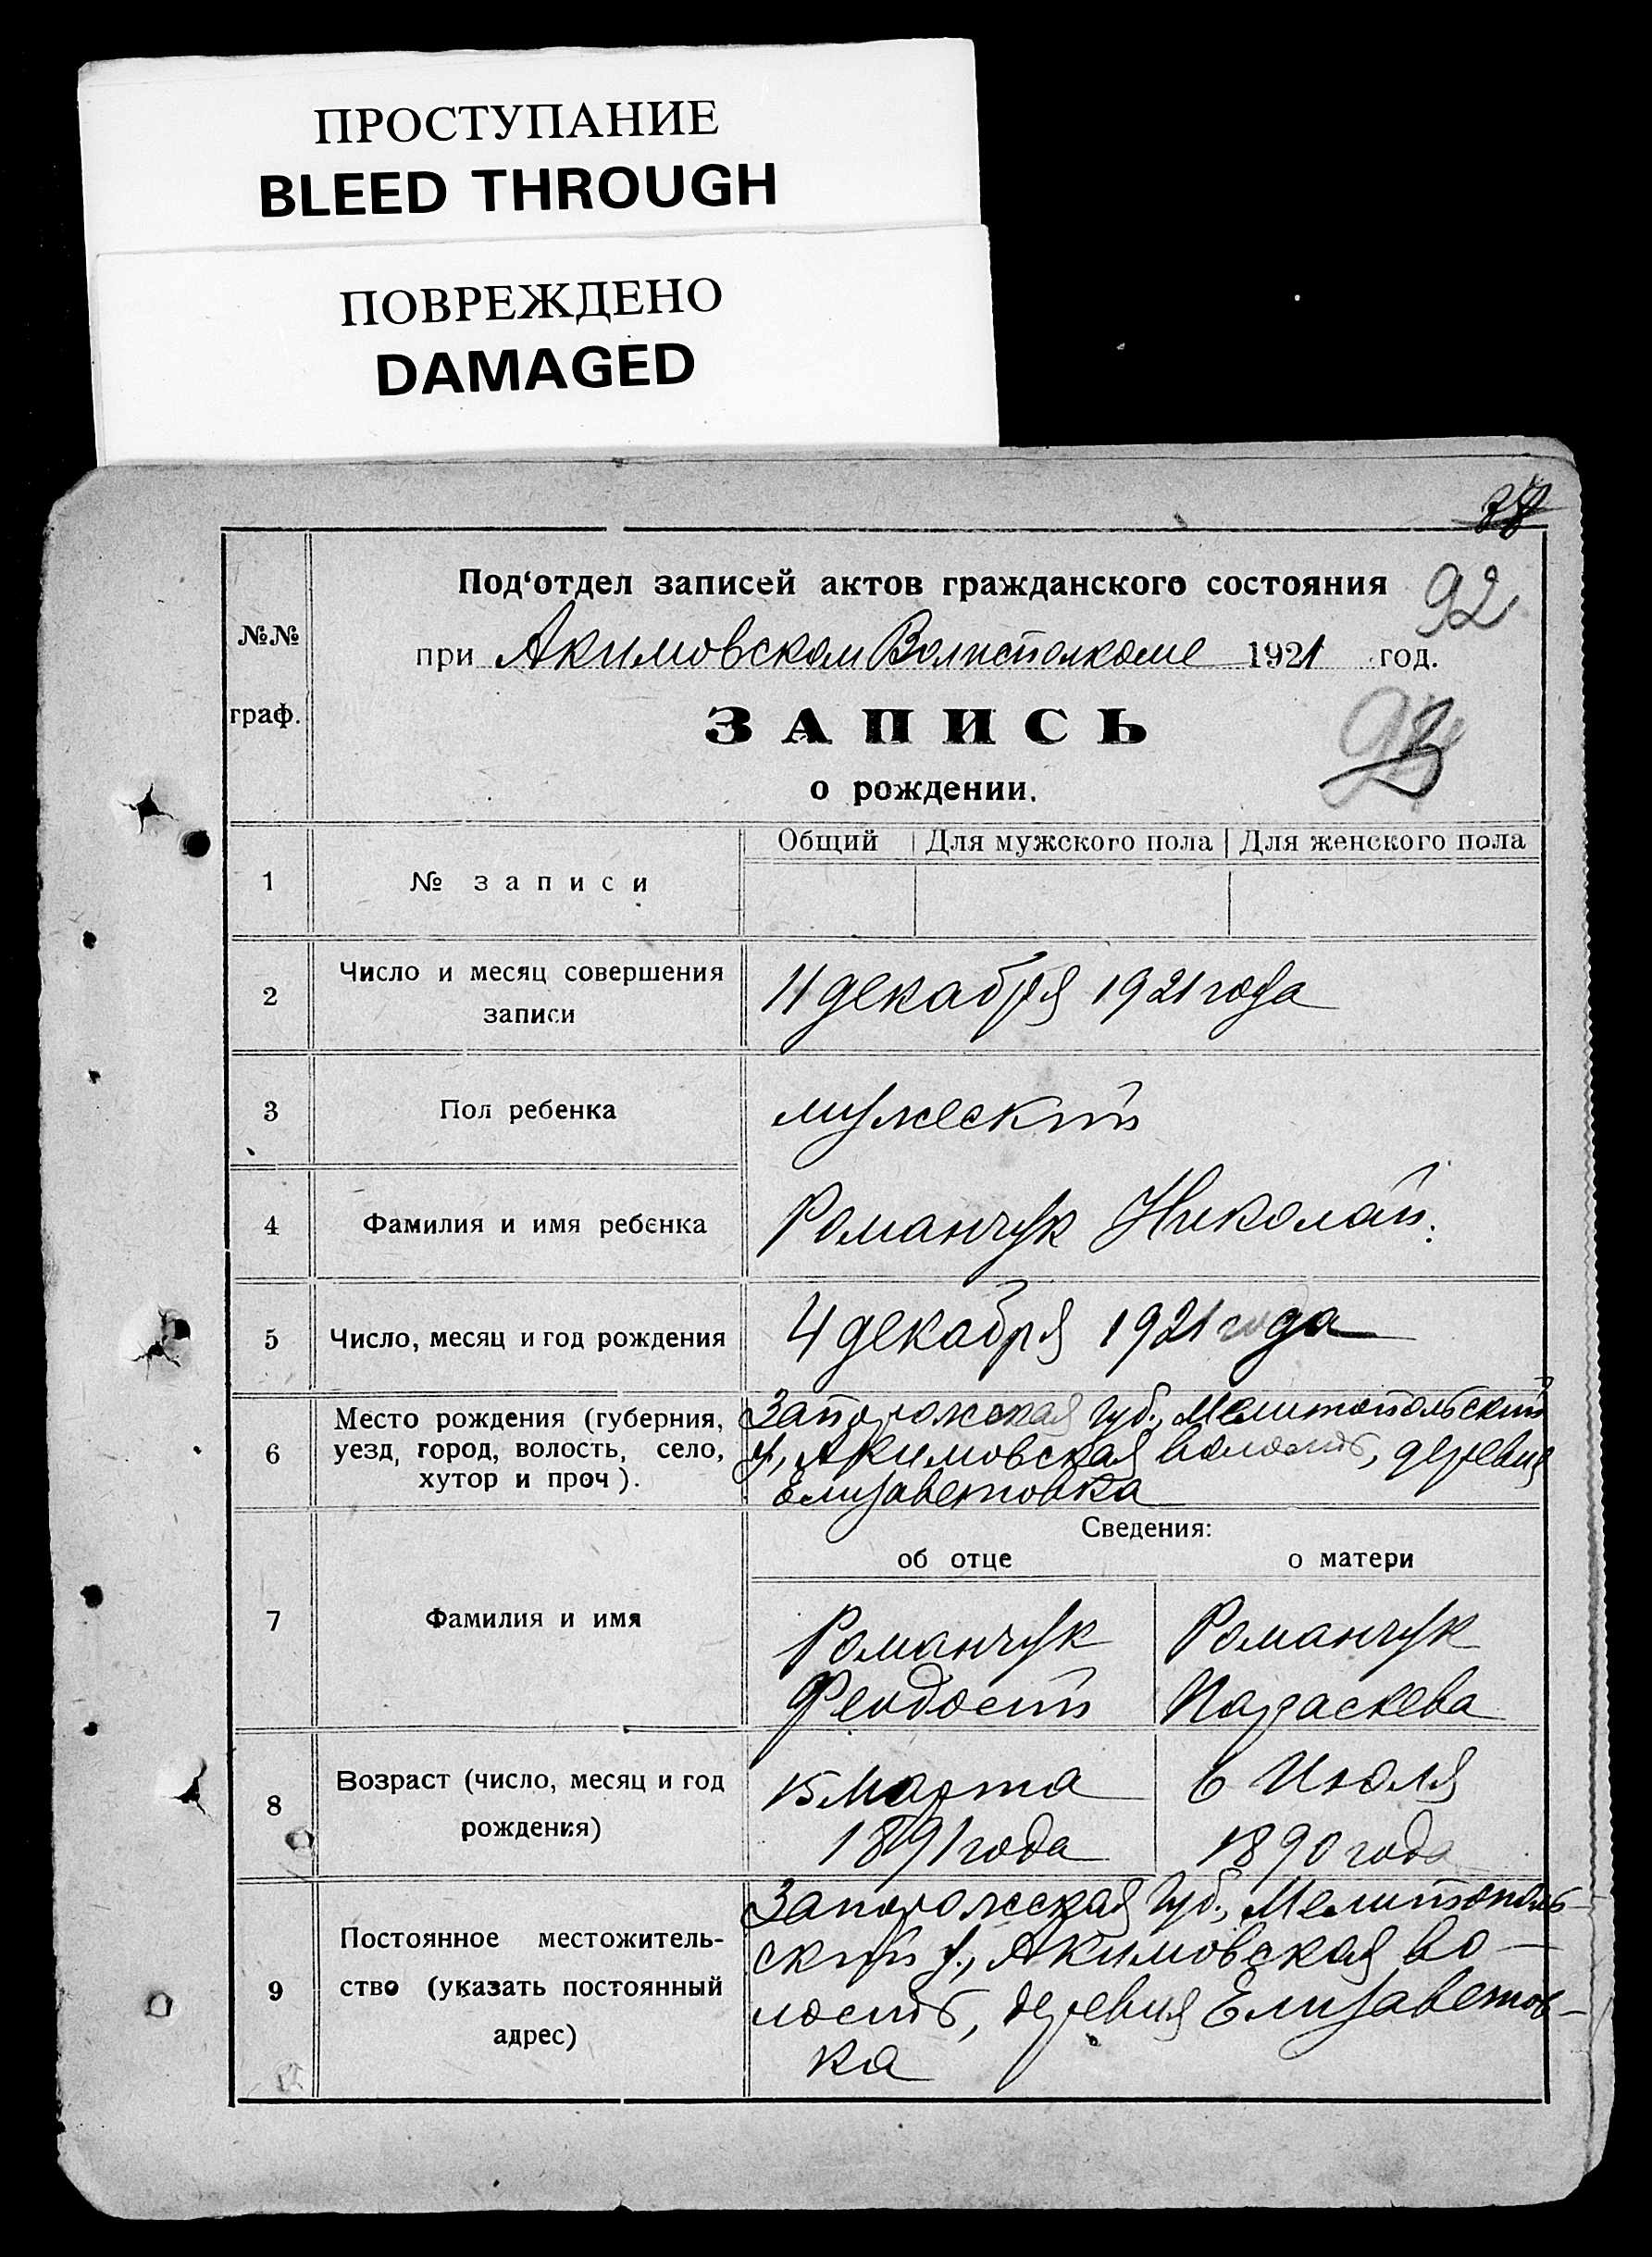 ПРОСТУПАНИЕ
BLEED THROUGH
ПОВРЕЖДЕНО
DAMAGED
Под‘отдел записей актов гражданского состояния
92
№№
при Акимовском Волисполкоме 1921 год.
граф.
ЗАПИСЬ
о рождении.
Общий Для мужского пола Для женского пола
1 № записи
2 Число и месяц совершения
записи
11 декабря 1921 года
3 Пол ребенка
мужеский
4 Фамилия и имя ребенка
Романчук Николай.
5 Число, месяц и год рождения
4 декабря 1921 года
6 Место рождения (губерния,
уезд, город, волость, село,
хутор и проч).
Запорожская губ., Мелитопольский
у., Акимовская волость, деревня
Елизаветовка
Сведения:
об отце о матери
7 Фамилия и имя
Романчук
Феодосий
Романчук
Параскева
8 Возраст (число, месяц и год
рождения)
15 Марта
1891 года
6 Июля
1890 года
9 Постоянное местожитель-
ство (указать постоянный
адрес)
Запорожская губ., Мелитополь-
ский у., Акимовская во-
лость, деревня Елизаветов-
ка